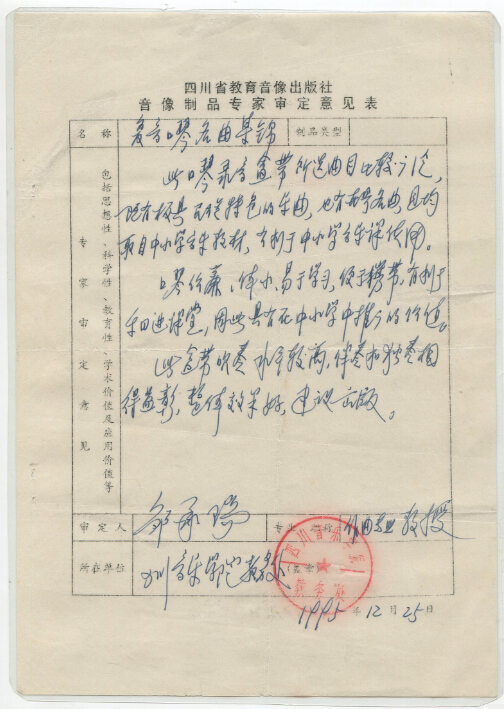 四川省教育音像出版社
音像制品专家审定意见表
名称 复音口琴名曲集锦 制品类型
专家审定意见
包括思想性、科学性、教育性、学术价值及应用价值等
此口琴录音盒带所选曲目比较广泛，
既有极具民族特色的乐曲，也有世界名曲，且均
取自中小学音乐教材，有利于中小学音乐课使用。
口琴价廉、体小、易于学习，便于携带，有利于
乐器进课堂，因此具有在中小学中推广的价值。
此盒带吹奏水平较高，伴奏和独奏相
得益彰，整体效果好，建议出版。
审定人 邹承瑞 专业 职称 作曲专业 教授
所在单位 四川音乐学院 (盖章)
1995年12月25日